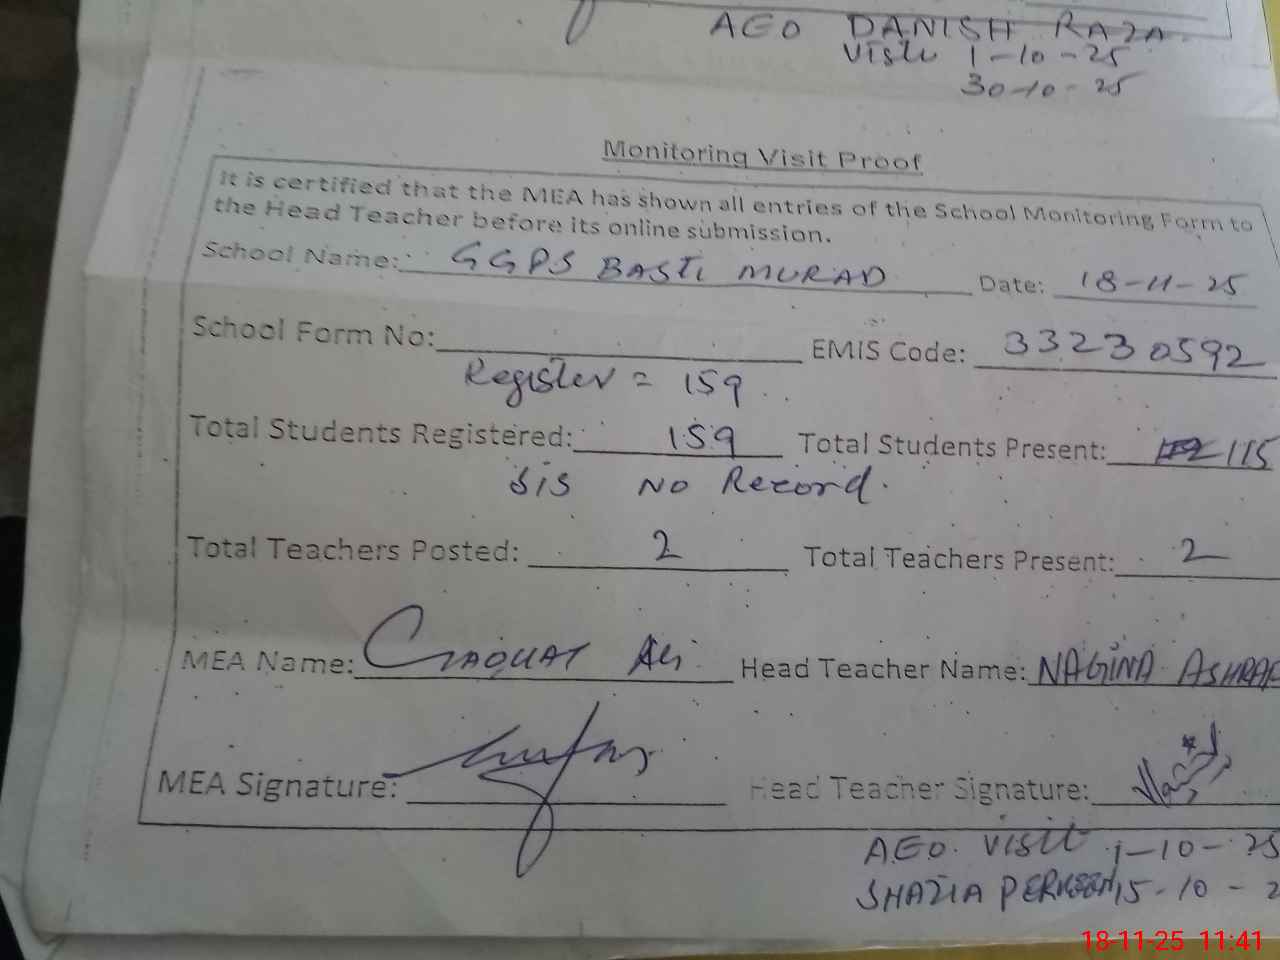 AEO DANISH RAZA
Visit 1-10-25
30-10-25
Monitoring Visit Proof
It is certified that the MEA has shown all entries of the School Monitoring Form to
the Head Teacher before its online submission.
School Name: GGPS BASTI MURAD Date: 18-11-25
School Form No: EMIS Code: 33230592
Register = 159
Total Students Registered: 159 Total Students Present: 115
SIS NO Record.
Total Teachers Posted: 2 Total Teachers Present: 2
MEA Name: LIAQUAT Ali Head Teacher Name: NAGINA ASHRAF
MEA Signature: Head Teacher Signature:
AEO. Visit 1-10-25
SHAZIA PERVEEN 15-10-2
18-11-25 11:41